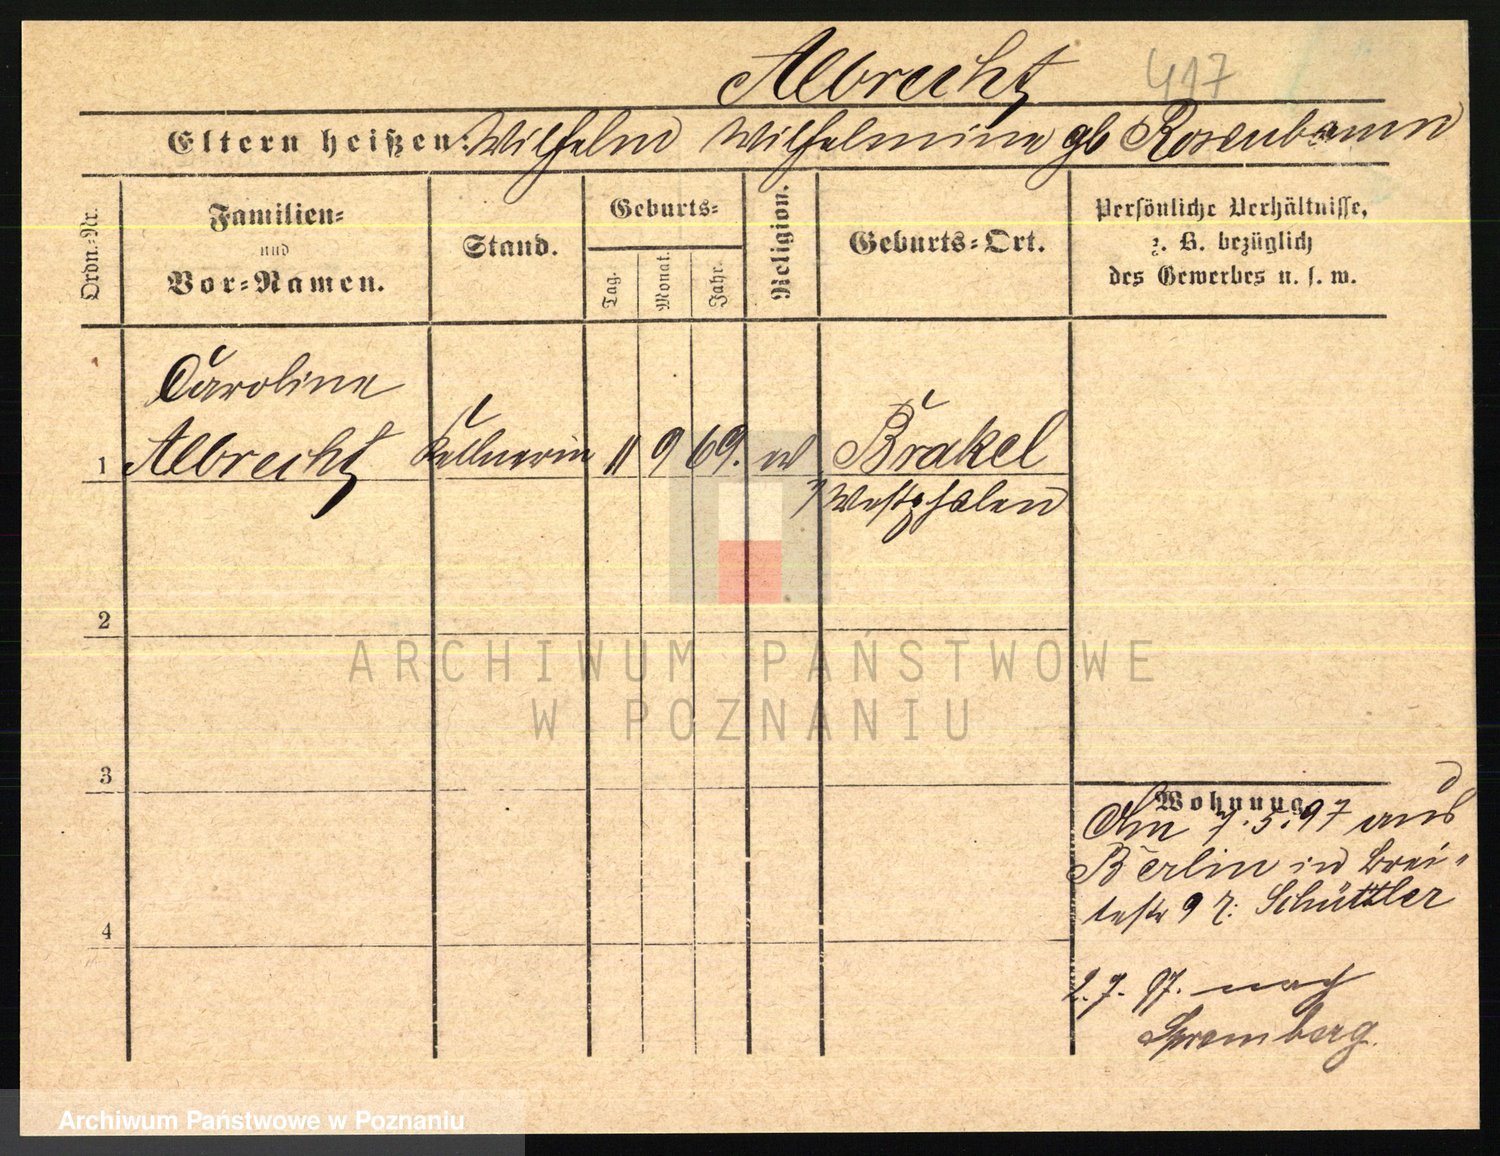 Albrecht 417
Eltern heißen: Wilhelm Wilhelmine gb Rosenbaum
Ordn.-Nr.
Familien-
und
Vor-Namen.
Stand.
Geburts-
Tag.
Monat.
Jahr.
Religion.
Geburts-Ort.
Persönliche Verhältnisse,
z. B. bezüglich
des Gewerbes u. s. w.
Caroline
1 Albrecht Kellnerin 11 9 69. ev Brakel
Westphalen
2
3
4
Wohnung
Am 7.5.97 aus
Berlin in Brei-
testr 9 b. Schüttler
2.7.97. nach
Spremberg.
ARCHIWUM PAŃSTWOWE
W POZNANIU
Archiwum Państwowe w Poznaniu